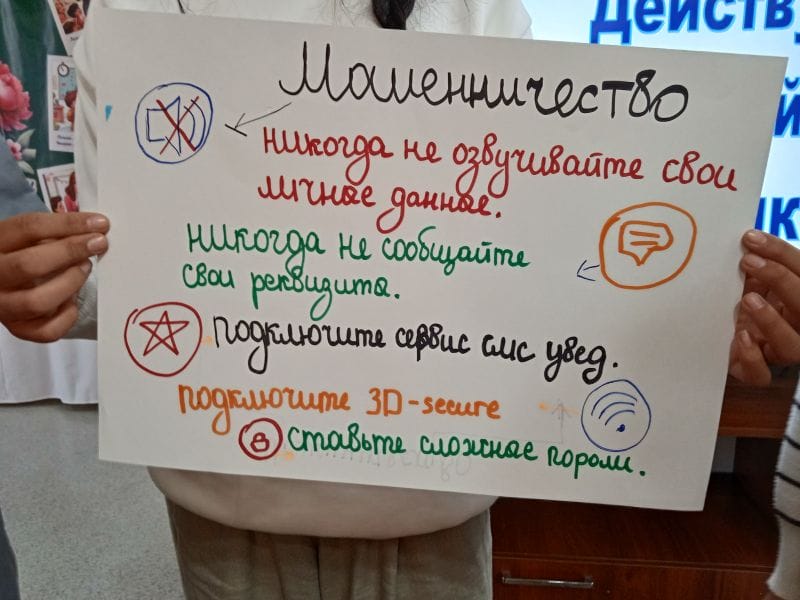 Действ
Мошенничество
никогда не озвучивайте свои
личные данные.
никогда не сообщайте
свои реквизиты.
подключите сервис смс увед.
подключите 3D-secure
ставьте сложные пороли.